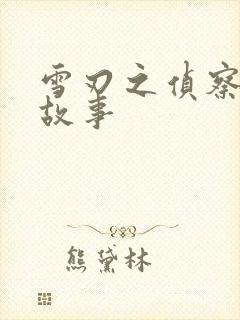 雪刃之偵察
故事
熊黛林